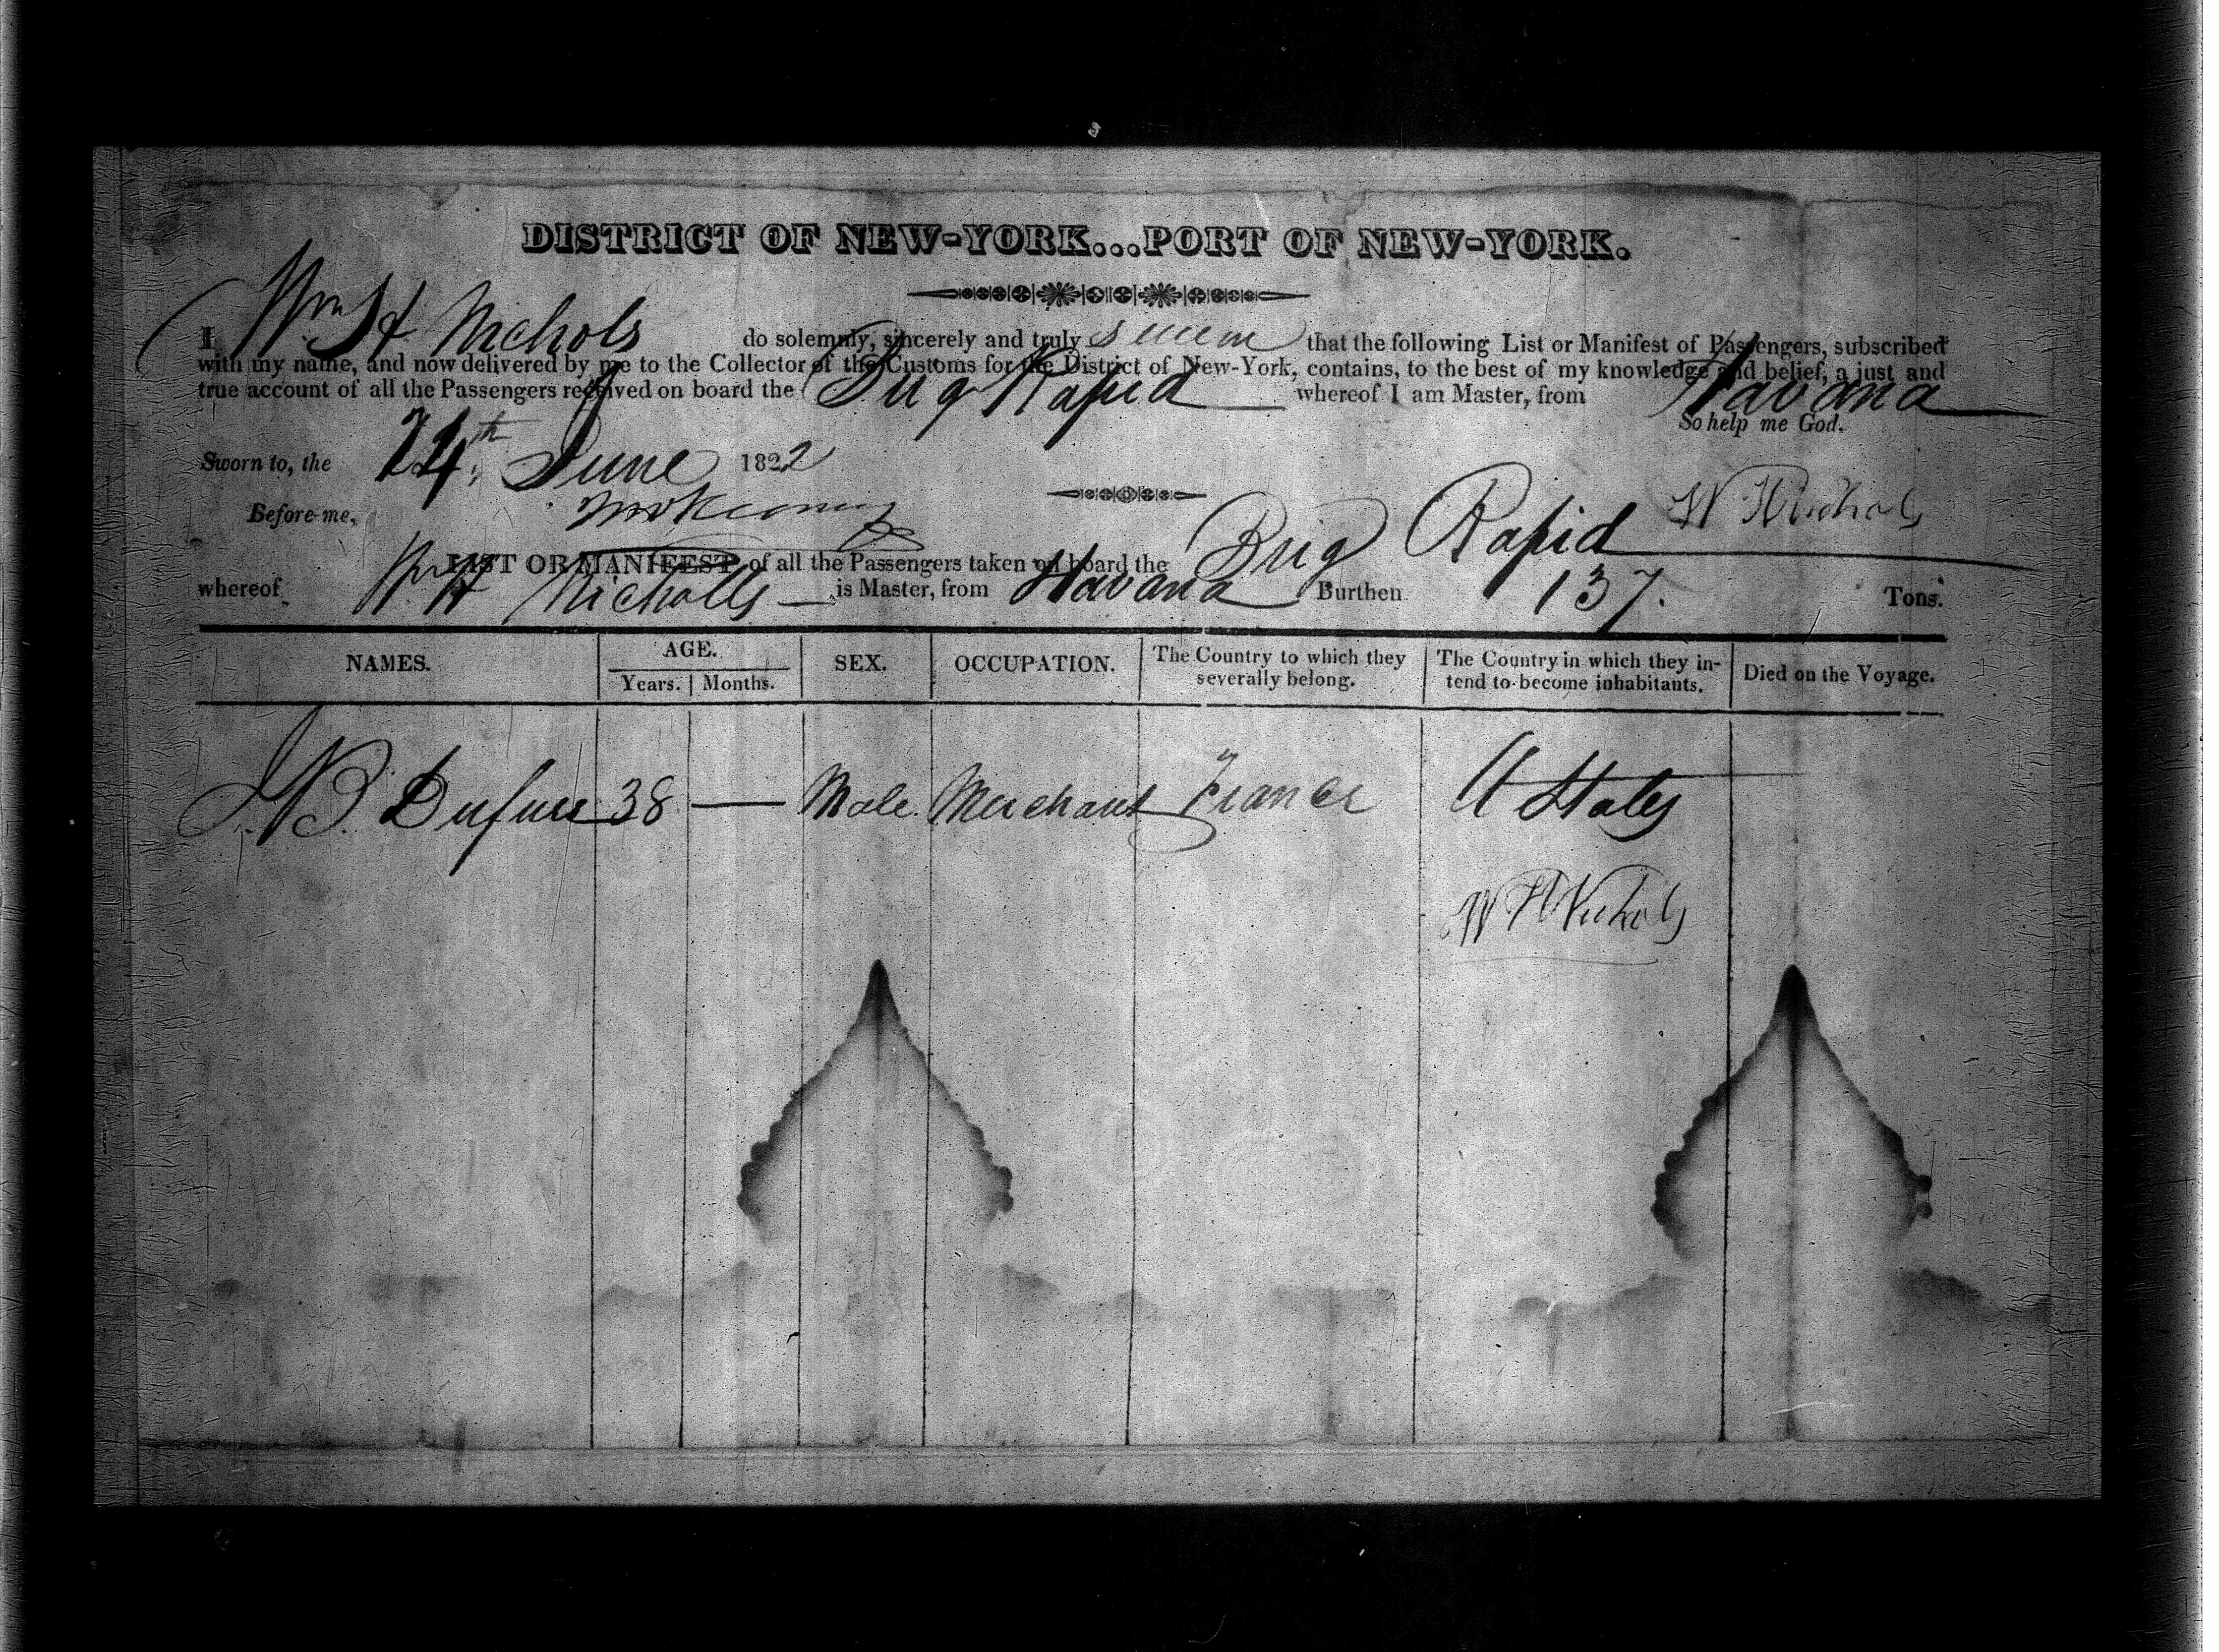 DISTRICT OF NEW-YORK...PORT OF NEW-YORK.
I Wm H Nichols do solemnly, sincerely and truly swear that the following List or Manifest of Passengers, subscribed
with my name, and now delivered by me to the Collector of the Customs for the District of New-York, contains, to the best of my knowledge and belief, a just and
true account of all the Passengers received on board the Brig Rapid whereof I am Master, from Havana
So help me God.
Sworn to, the 24th June 1822
Before me, W H Nichols
LIST OR MANIFEST of all the Passengers taken on board the Brig Rapid
whereof Wm H Nicholls is Master, from Havana Burthen 137. Tons.
NAMES. AGE. SEX. OCCUPATION. The Country to which they severally belong. The Country in which they in-tend to become inhabitants. Died on the Voyage.
Years. Months.
J.B. 38 — Male. Merchant France U States
W H Nichols